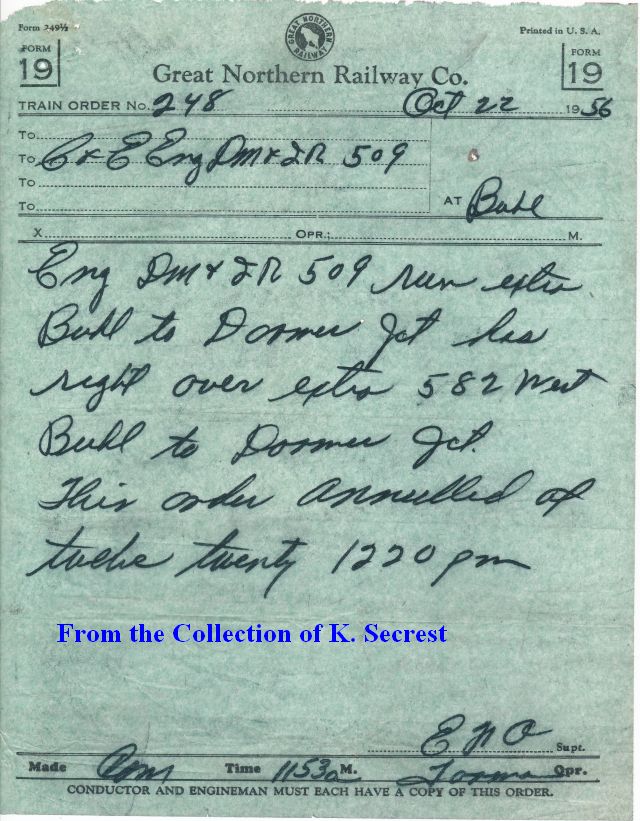 Form 249½
Printed in U. S. A.
GREAT NORTHERN RAILWAY
FORM 19
FORM 19
Great Northern Railway Co.
TRAIN ORDER No. 248 Oct 22 1956
To
To C & E Eng DM & IR 509
To
To
AT Buhl
X OPR.: M.
Eng DM & IR 509 run extra
Buhl to Dormer Jct has
right over extra 582 West
Buhl to Dormer Jct.
This order annulled at
twelve twenty 1220 pm
From the Collection of K. Secrest
Supt.
Made Com Time 1153a M. Opr.
CONDUCTOR AND ENGINEMAN MUST EACH HAVE A COPY OF THIS ORDER.